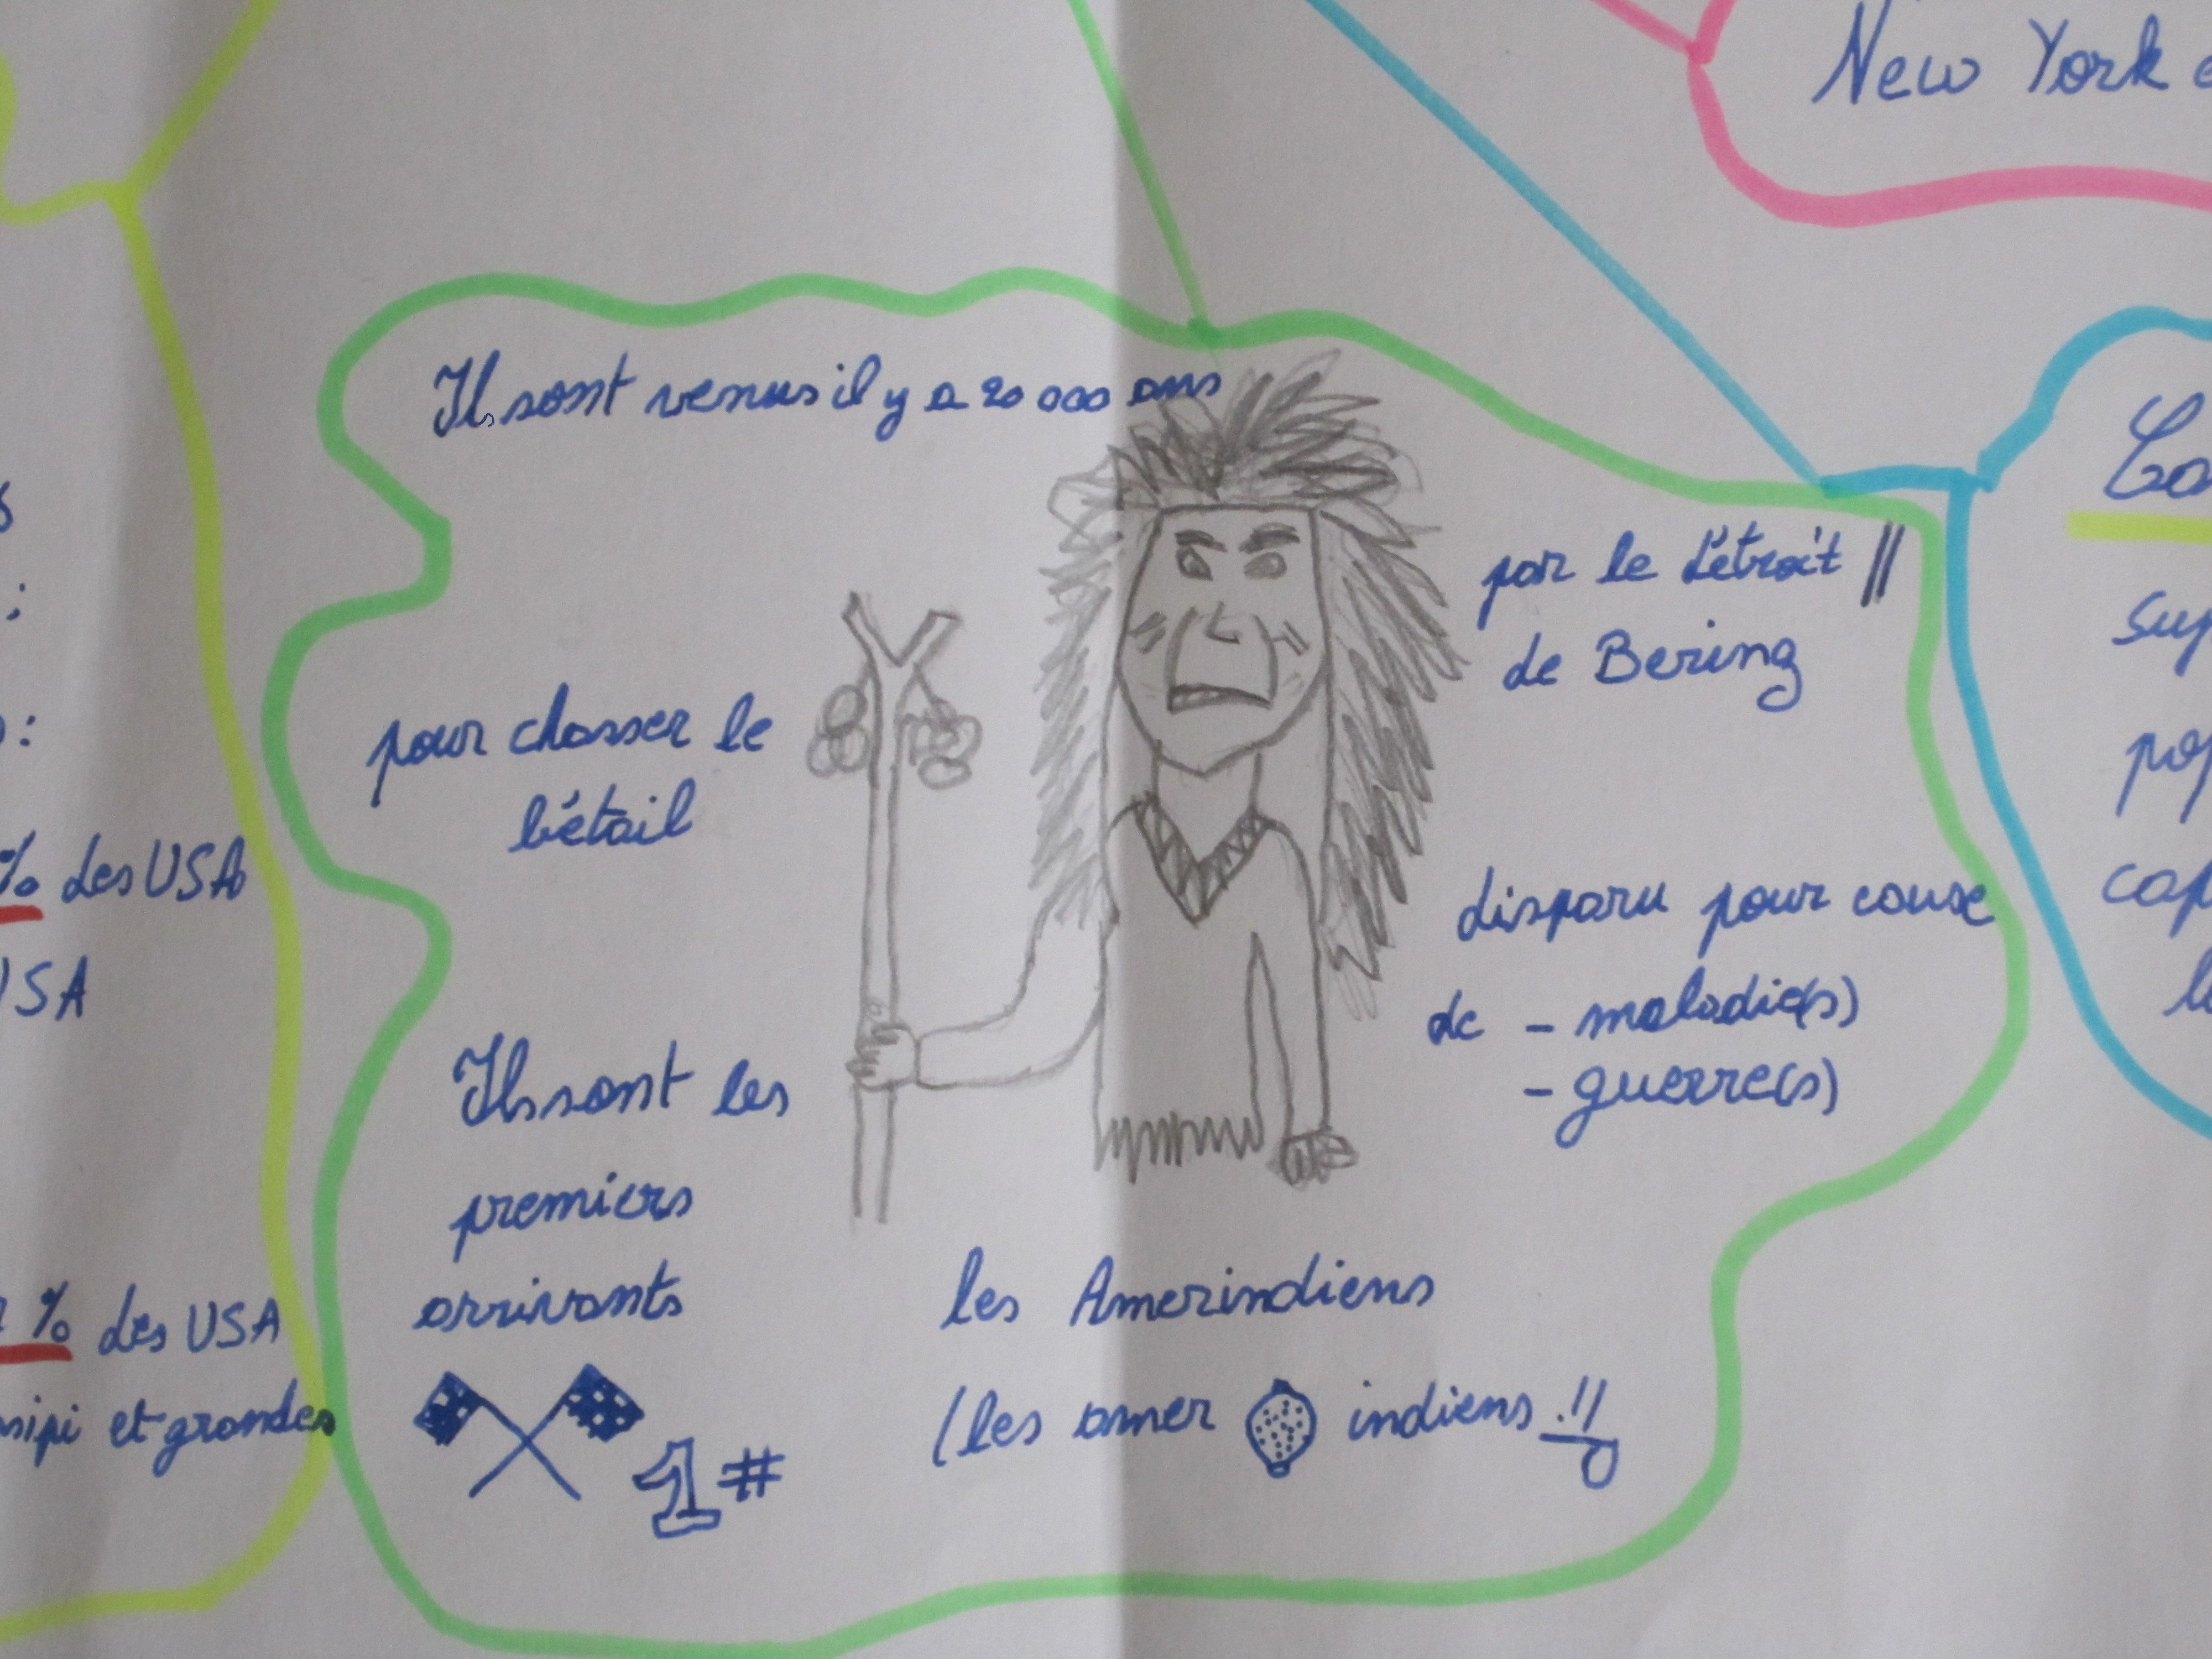 New York
Ils sont venus il y a 20 000 ans
par le détroit
de Bering
pour chasser le
bétail
disparu pour cause
de - maladie(s)
- guerre(s)
Ils sont les
premiers
arrivants
1#
les Amerindiens
(les amer indiens !!)
% des USA
USA
% des USA
et grandes